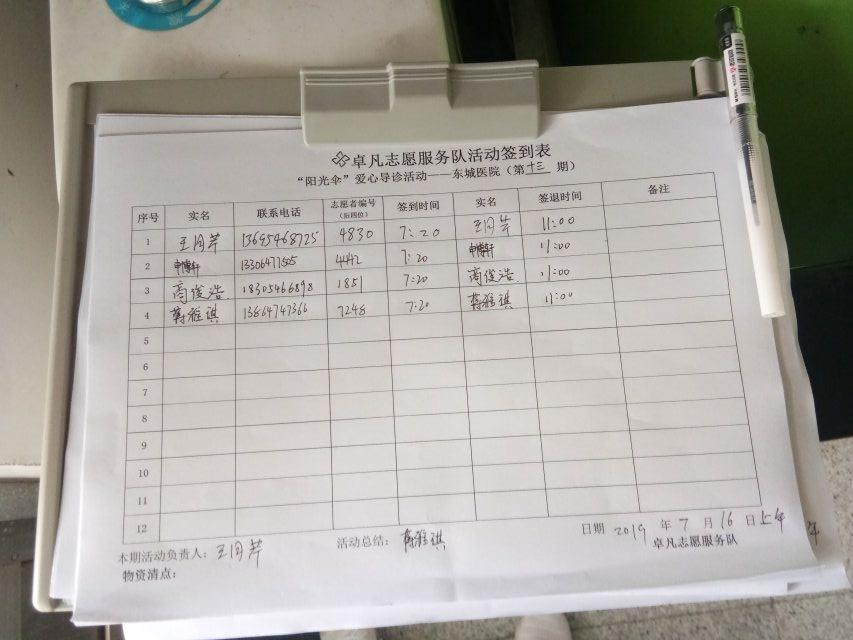 卓凡志愿服务队活动签到表
“阳光伞”爱心导诊活动——东城医院（第十三期）
序号 实名 联系电话 志愿者编号（后四位） 签到时间 实名 签退时间 备注
1 王同芹 13695468725 4830 7:20 王同芹 11:00
2 13306471505 4442 7:20 11:00
3 高俊浩 18305466898 1851 7:20 高俊浩 11:00
4 蒋雅琪 13864747366 7248 7:20 蒋雅琪 11:00
5
6
7
8
9
10
11
12
本期活动负责人：王同芹 活动总结：蒋雅琪 日期 2019 年 7 月 16 日上午
物资清点： 卓凡志愿服务队
年